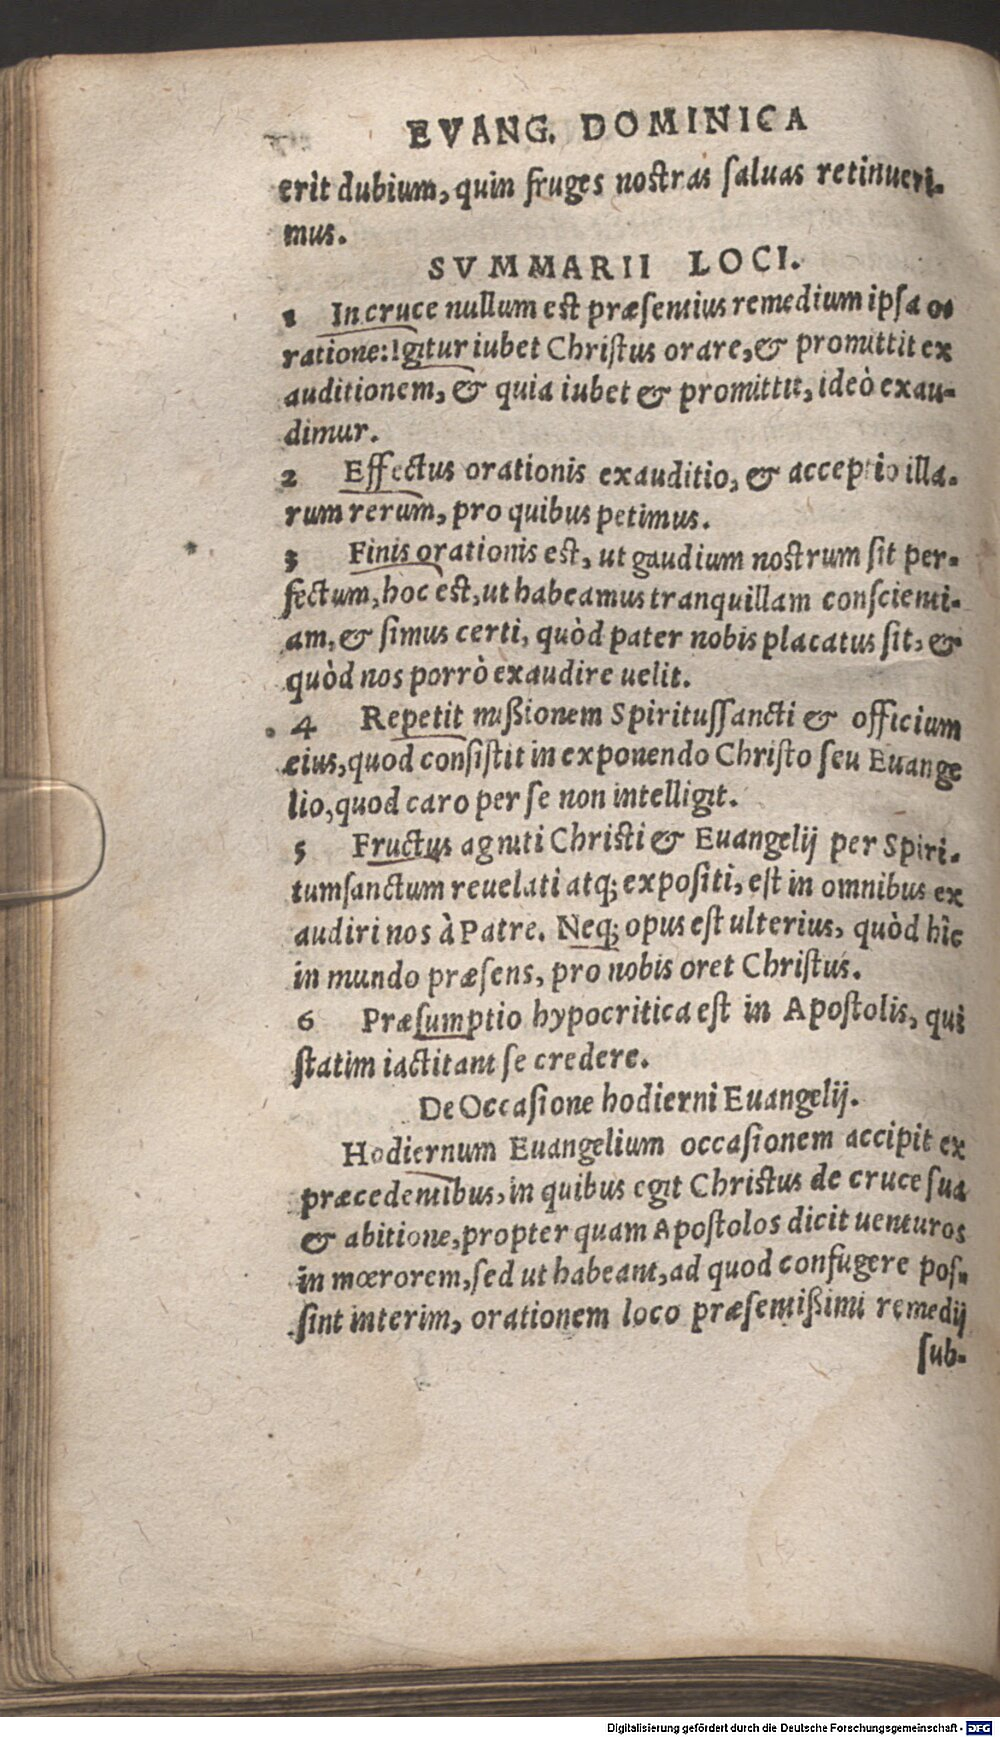 EVANG. DOMINICA
erit dubium, quin fruges nostras saluas retinueri-
mus.
SVMMARII LOCI.
1 In cruce nullum est præsentius remedium ipsa o-
ratione: Igitur iubet Christus orare, & promittit ex
auditionem, & quia iubet & promittit, ideò exau-
dimur.
2 Effectus orationis exauditio, & acceptio illa-
rum rerum, pro quibus petimus.
3 Finis orationis est, ut gaudium nostrum sit per-
fectum, hoc est, ut habeamus tranquillam conscienti-
am, & simus certi, quòd pater nobis placatus sit, &
quòd nos porrò exaudire uelit.
4 Repetit mißionem Spiritussancti & officium
eius, quod consistit in exponendo Christo seu Euange
lio, quod caro per se non intelligit.
5 Fructus agniti Christi & Euangelij per Spiri-
tumsanctum reuelati atq; expositi, est in omnibus ex
audiri nos à Patre. Neq; opus est ulterius, quòd hîc
in mundo præsens, pro nobis oret Christus.
6 Præsumptio hypocritica est in Apostolis, qui
statim iactitant se credere.
De Occasione hodierni Euangelij.
Hodiernum Euangelium occasionem accipit ex
præcedentibus, in quibus egit Christus de cruce sua
& abitione, propter quam Apostolos dicit uenturos
in mœrorem, sed ut habeant, ad quod confugere pos-
sint interim, orationem loco præsentißimi remedij
sub-
Digitalisierung gefördert durch die Deutsche Forschungsgemeinschaft - DFG